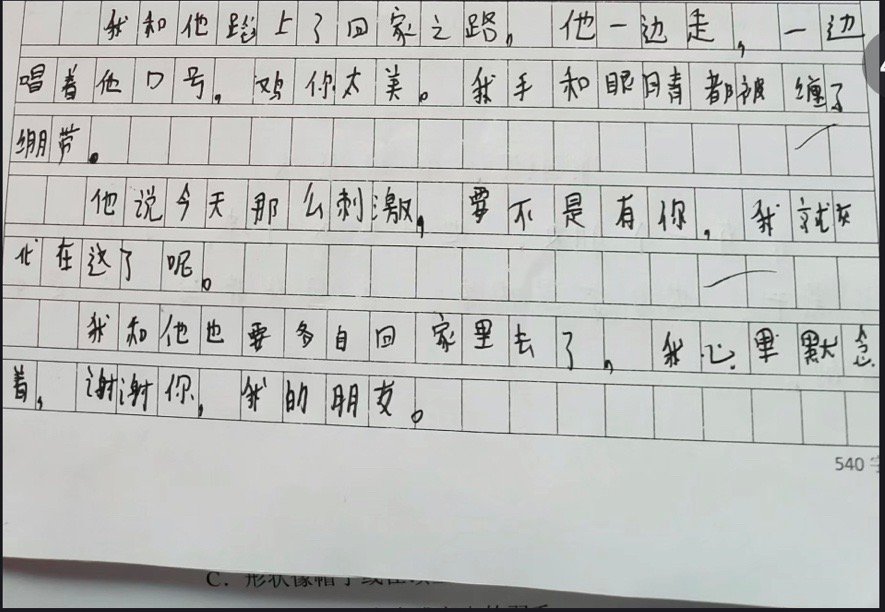 我和他踏上了回家之路，他一边走，一边
唱着他口号，鸡你太美。我手和眼睛都被缠了
绷带。
他说今天那么刺激，要不是有你，我就交
代在这了呢。
我和他也要各自回家里去了，我心里默念
着，谢谢你，我的朋友。
540字
C．形状像帽子